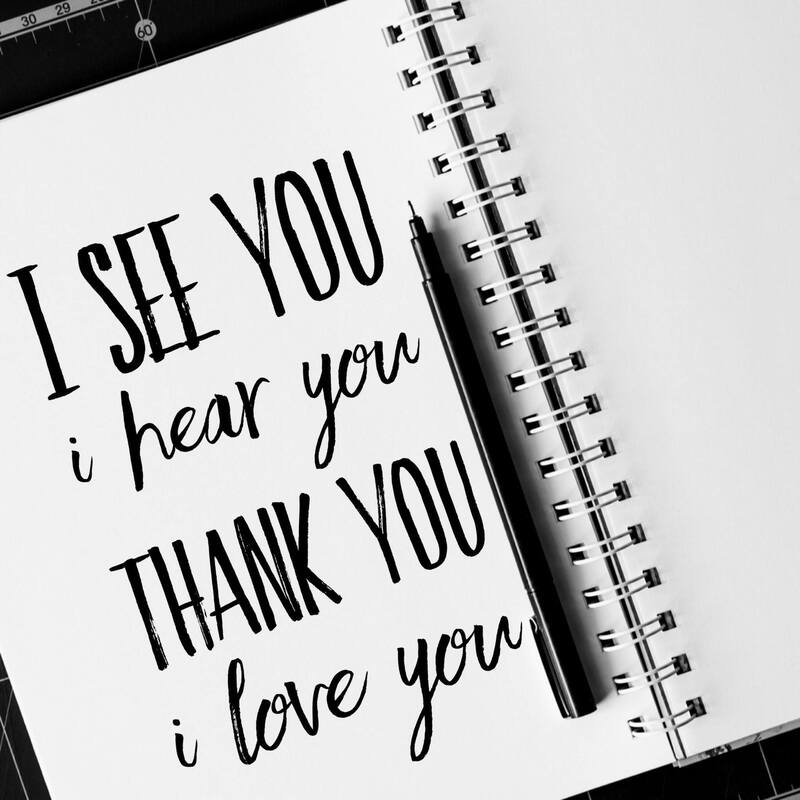 30 29
60°
I SEE YOU
i hear you
THANK YOU
i love you